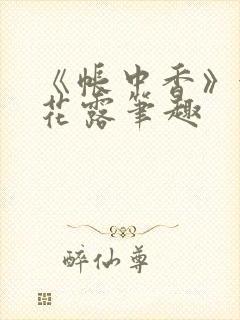 《帐中香》
花露笔趣
醉仙尊